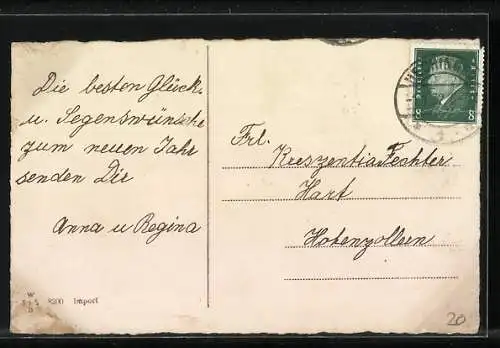 Die besten Glück-
u. Segenswünsche
zum neuen Jahr
senden Dir
Anna u Regina
Frl.
Kreszentia Fechter
Hart
Hohenzollern
8
8
W
B
8200 Import
20